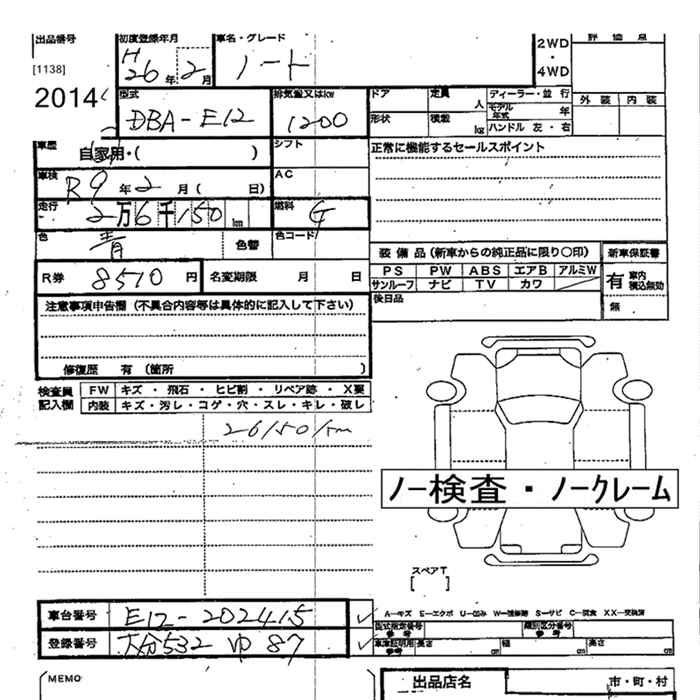 出品番号 初度登録年月 車名・グレード 評価点
[1138] H26年2月 ノート 2WD・4WD
2014 型式 排気量又はkw ドア 定員 人 ディーラー・並行 外装 内装
DBA-E12 1200 形状 積載 kg モデル年式 年
ハンドル 左・右
車歴 自家用・( ) シフト 正常に機能するセールスポイント
車検 R9年2月( 日) AC
走行 2万6千150km 燃料 G
色 青 色替 色コード
装備品(新車からの純正品に限り〇印) 新車保証書
PS PW ABS エアB アルミW 有 車内積込無効
R券 8510円 名変期限 月 日 サンルーフ ナビ TV カワ
後日品 無
注意事項申告欄(不具合内容等は具体的に記入して下さい)
修復歴 有 (箇所 )
検査員記入欄 FW キズ・飛石・ヒビ割・リペア跡・X要
内装 キズ・汚レ・コゲ・穴・スレ・キレ・破レ
26150km
ノー検査・ノークレーム
スペアT
[ ]
A―キズ E―エクボ U―凹み W―補修跡 S―サビ C―腐食 XX―交換済
車台番号 E12-202415 型式指定番号 参考 類別区分番号 参考
登録番号 大分532 ゆ 87 車庫証明用 参考 長さ cm 幅 cm 高さ cm
MEMO 出品店名 市・町・村